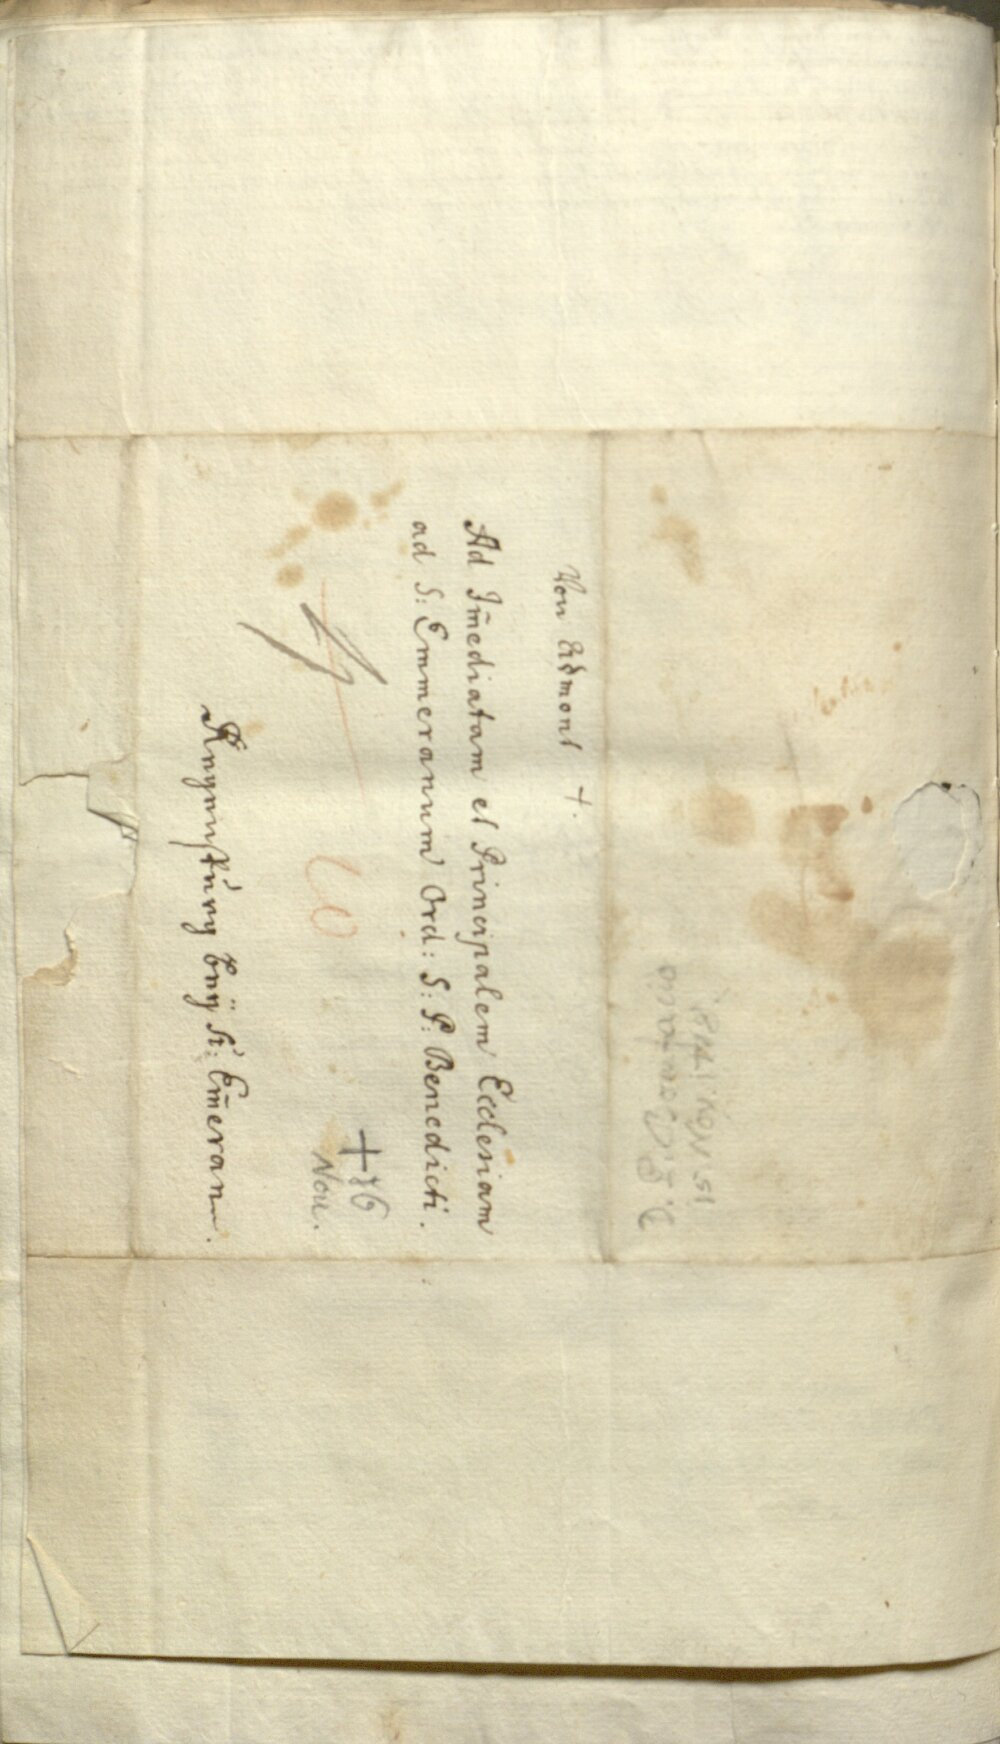 Von Admont +.
Ad Im̄ediatam et Principalem Ecclesiam
ad S: Emmeranum Ord: S: P: Benedicti.
+ 86
Nou.
Regenspurg beÿ St: Em̄eran.
15 Nov. 1781